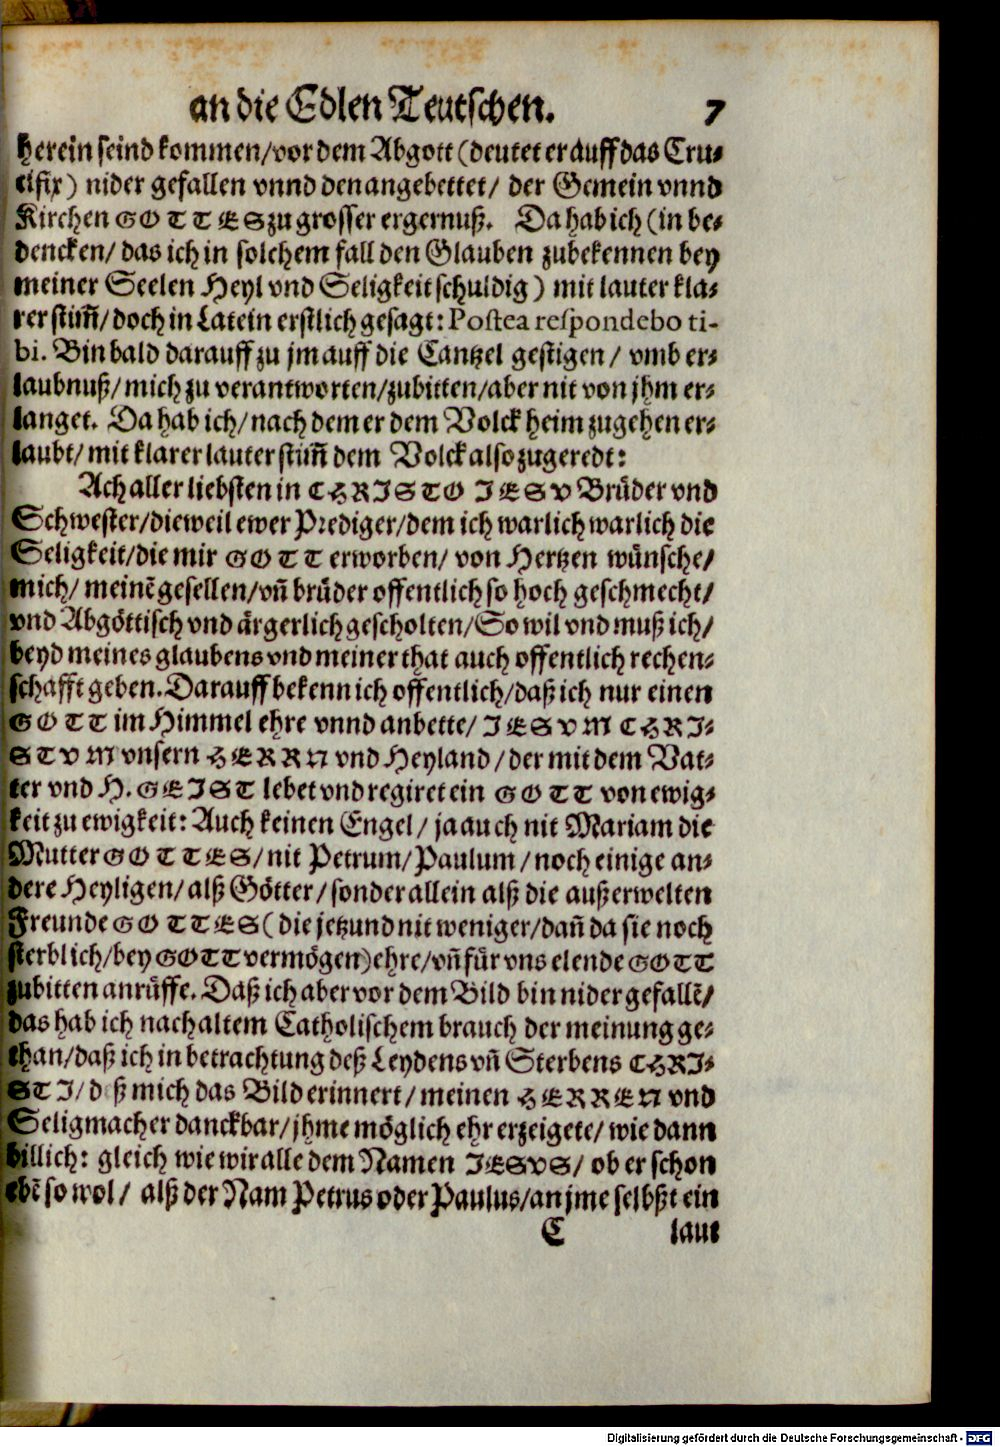 an die Edlen Teutschen. 7
herein seind kommen/vor dem Abgott (deutet er auff das Cru⸗
cifix) nider gefallen vnnd den angebettet/ der Gemein vnnd
Kirchen GOTTES zu grosser ergernuß. Da hab ich (in be⸗
dencken/ das ich in solchem fall den Glauben zubekennen bey
meiner Seelen Heyl vnd Seligkeit schuldig) mit lauter kla⸗
rer stim̃/doch in Latein erstlich gesagt: Postea respondebo ti-
bi. Bin bald darauff zu jm auff die Cantzel gestigen/ vmb er⸗
laubnuß/mich zu verantworten/zubitten/aber nit von jhm er⸗
langet. Da hab ich/nach dem er dem Volck heim zugehen er⸗
laubt/mit klarer lauter stim̃ dem Volck also zugeredt:
Ach aller liebsten in CHRISTO IESV Brüder vnd
Schwester/dieweil ewer Prediger/dem ich warlich warlich die
Seligkeit/die mir GOTT erworben/ von Hertzen wünsche/
mich/ meinẽ gesellen/vñ brüder offentlich so hoch geschmecht/
vnd Abgöttisch vnd ärgerlich gescholten/So wil vnd muß ich/
beyd meines glaubens vnd meiner that auch offentlich rechen⸗
schafft geben. Darauff bekenn ich offentlich/daß ich nur einen
GOTT im Himmel ehre vnnd anbette/ IESVM CHRI⸗
STVM vnsern HERRN vnd Heyland/der mit dem Vat⸗
ter vnd H. GEIST lebet vnd regiret ein GOTT von ewig⸗
keit zu ewigkeit: Auch keinen Engel/ ja auch nit Mariam die
Mutter GOTTES/nit Petrum/Paulum/noch einige an⸗
dere Heyligen/alß Götter/sonder allein alß die außerwelten
Freunde GOTTES (die jetzund nit weniger/dañ da sie noch
sterblich/bey GOTT vermögen) ehre/vñ für vns elende GOTT
zubitten anrüffe. Daß ich aber vor dem Bild bin nider gefallẽ/
das hab ich nach altem Catholischem brauch der meinung ge⸗
than/daß ich in betrachtung deß Leydens vñ Sterbens CHRI⸗
STI/d ß mich das Bild erinnert/ meinen HERREN vnd
Seligmacher danckbar/jhme möglich ehr erzeigete/ wie dann
billich: gleich wie wir alle dem Namen IESVS/ ob er schon
ebẽ so wol/ alß der Nam Petrus oder Paulus/an jme selbßt ein
C laut
Digitalisierung gefördert durch die Deutsche Forschungsgemeinschaft - DFG